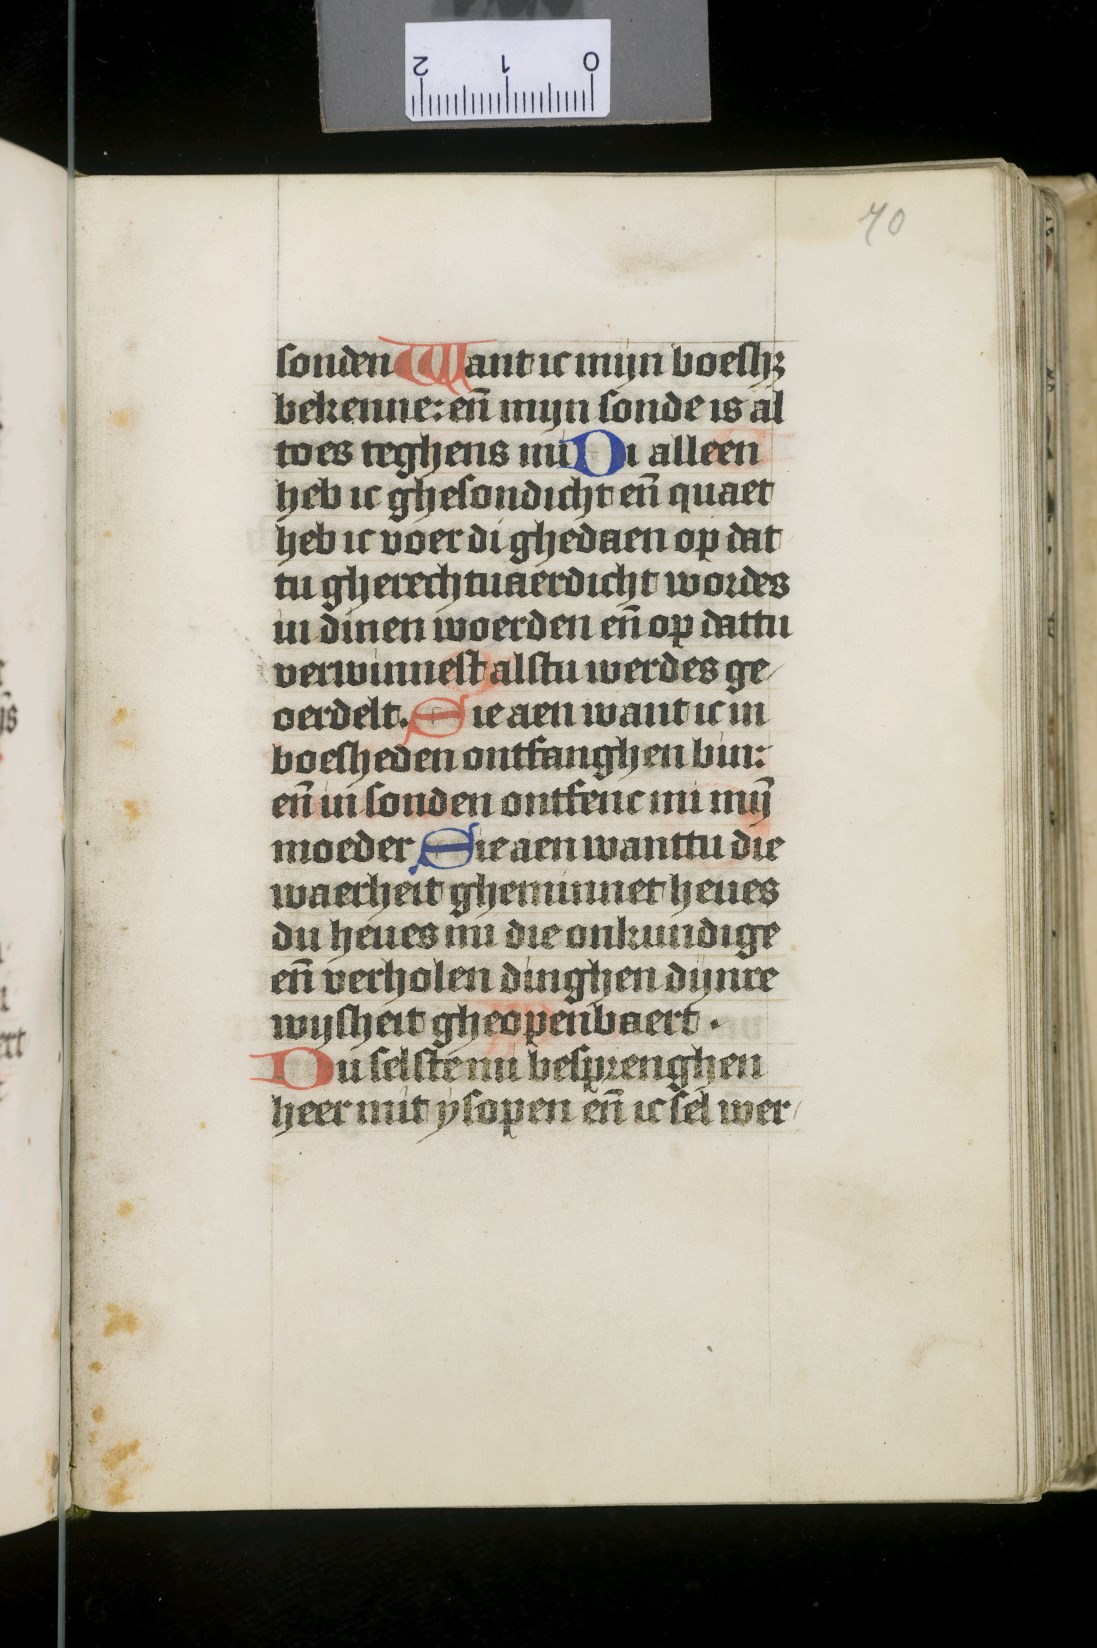 70
sonden Want ic mijn boeshʒ
bekenne: en̄ mijn sonde is al
toes teghens mi Di alleen
heb ic ghesondicht en̄ quaet
heb ic voer di ghedaen op dat
tu gherechtuaerdicht wordes
in dinen woerden en̄ op dattu
verwinnest alstu werdes ge
oerdelt. Sie aen want ic in
boesheden ontfanghen bin:
en̄ in sonden ontfenc mi mij̄
moeder Sie aen wanttu die
waerheit gheminnet heues
du heues mi die onkundige
en̄ verholen dinghen dijnre
wijsheit gheopenbaert.
Du selste mi besprenghen
heer mit ysopen en̄ ic sel wer
2 1 0